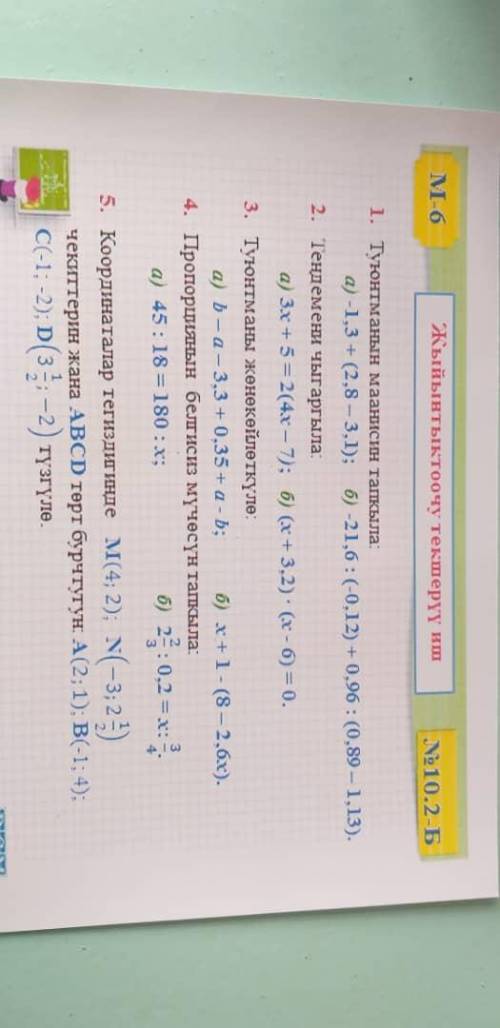 М-6
Жыйынтыктоочу текшерүү иш
№10.2-Б
1. Туюнтманын маанисин тапкыла:
а) -1,3 + (2,8 – 3,1); б) -21,6 : (-0,12) + 0,96 : (0,89 – 1,13).
2. Теңдемени чыгаргыла:
а) 3x + 5 = 2(4x – 7); б) (x + 3,2) · (x - 6) = 0.
3. Туюнтманы жөнөкөйлөткүлө:
а) b – a – 3,3 + 0,35 + a - b; б) x + 1 - (8 – 2,6x).
4. Пропорциянын белгисиз мүчөсүн тапкыла:
а) 45 : 18 = 180 : x; б) 2 2/3 : 0,2 = x : 3/4.
5. Координаталар тегиздигинде M(4; 2); N(−3; 2 1/2)
чекиттерин жана ABCD төрт бурчтугун: A(2; 1); B(-1; 4);
C(-1; -2); D(3 1/2; −2) түзгүлө.